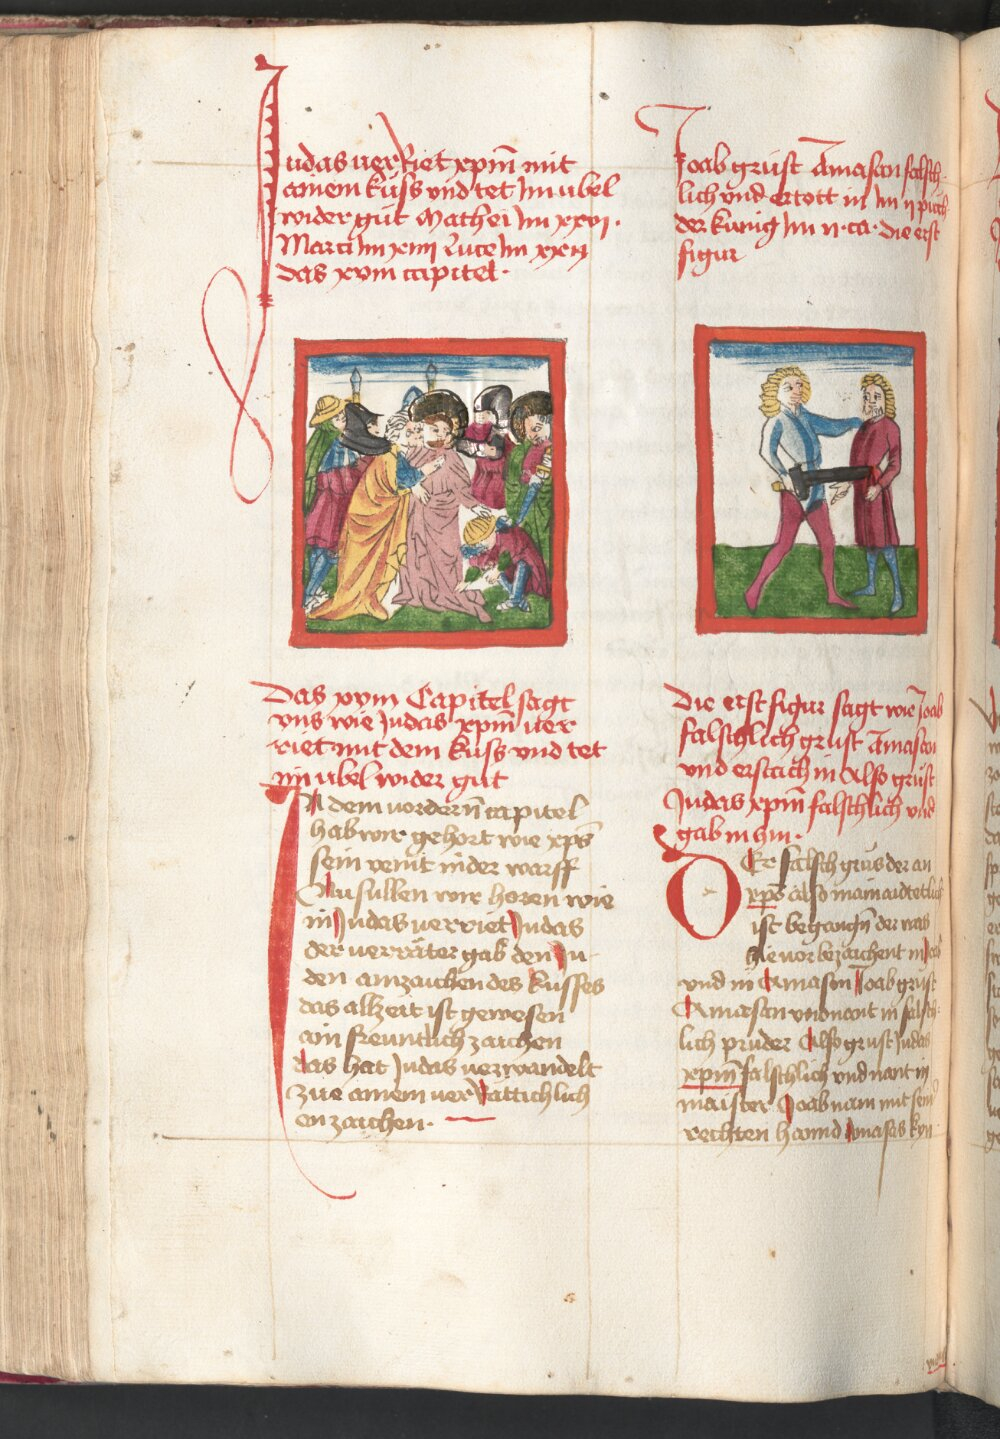 Judas verriet xpm̄ mit
ainem kuss vnd tet Im ubel
wider gůt Mathei Im xxvj.
Marci Im xiiij Luce Im xxij
das xviij capitel.
Das xviij Capitel sagt
vns wie Judas xpm̄ ver
riet mit dem kuss vnd tet
im ubel wider gůt
In dem vordern̄ capitel
hab wir gehort wie xps̄
sein veint nider warff
Nu sullen wir horen wie
in Judas verriet Judas
der verräter gab den Ju
den ainzaichen des kusses
das allzeit ist gewesen
ain freuntlich zaichen
das hat Judas verwandelt
zue ainem ver Rättichlich
en zaichen.
Joab grust Amasan falsch
lich vnd ertott in Im ij půch
der kunig Im ca. die erst
figur
Die erst figur sagt wie Joab
falschlich grust Amasan
vnd erstach in Also grust
Judas xpm̄ falschlich vnd
gab in hin.
Der falsch grus der an
xpō also
ist begangn̄ der was
hie vor bezaichent in
vnd in Amason Joab grust
Amasan vnd nant in falsch
lich pruder Also grust Judas
xpm̄ falschlich vnd nant in
maister Joab nam mit sein̄
rechten hannd Amasas kyn